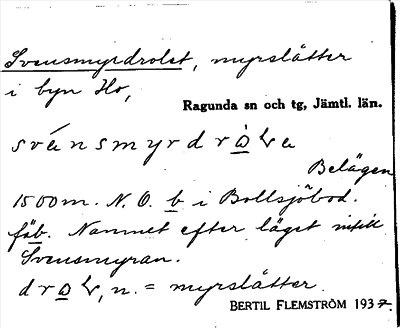 Svensmyrdrolet, myrslåtter
i byn Ho,
Ragunda sn och tg, Jämtl. län.
Belägen
1500 m. N.O. b i Bollsjöbod.
fäb. Namnet efter läget intill
Svensmyran.
n. = myrslåtter.
BERTIL FLEMSTRÖM 1937.